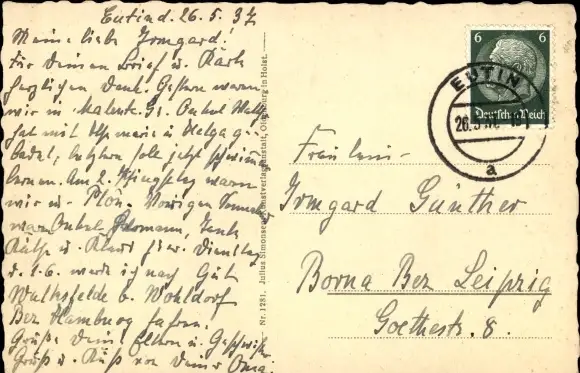 Eutin d. 26.5.37
Meine liebe Irmgard!
Für Deinen Brief u. Karte
herzlichen Dank. Gestern waren
wir in Malente-Gr. Onkel
hat mit u. Helga ge-
badet, letztere soll jetzt schwim
lernen. Am 2. Pfingsttag waren
wir in Plön. Vorigen
war Onkel Hermann, Tante
Käthe u. Klaus hier. Dienstag
d. 1.6. werde ich nach Gut
b. Wohldorf
Bez Hamburg fahren.
Grüße Deine Eltern u. Geschwister.
Gruß u. Kuß von Deiner Oma.
Nr. 1281. Julius Simonsen, Kunstverlagsanstalt, Oldenburg in Holst.
6 6
Deutsches Reich
EUTIN
26.5.
a
Fräulein
Irmgard Günther
Borna Bez Leipzig
Goethestr. 8.